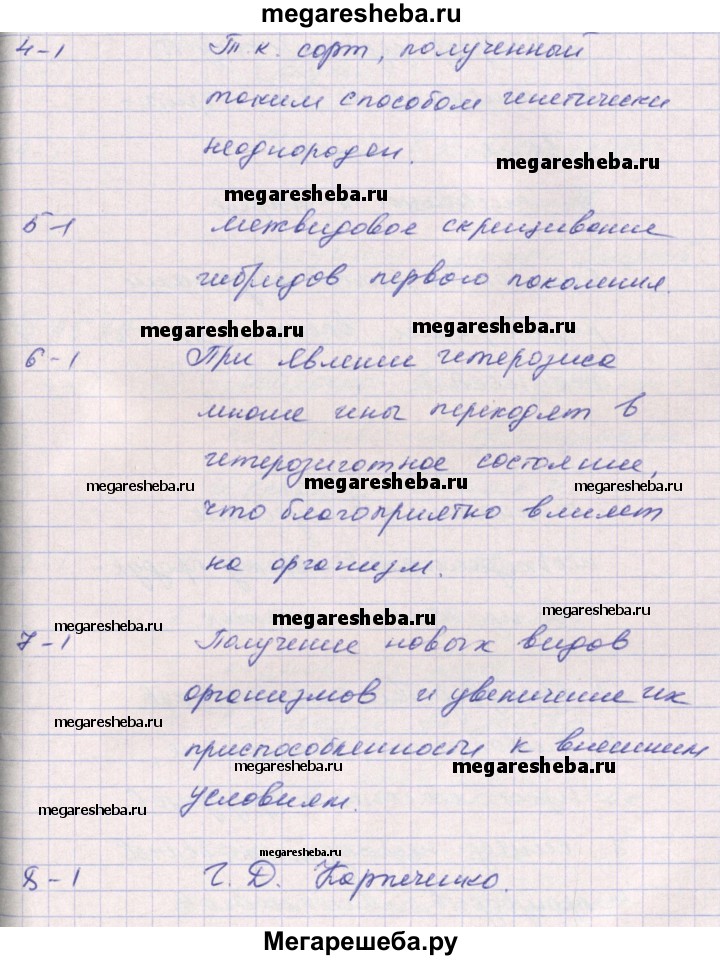 megaresheba.ru
4-1 Т.к. сорт, полученный
таким способом генетически
неоднороден.
megaresheba.ru
megaresheba.ru
5-1 межвидовое скрещивание
гибридов первого поколения.
megaresheba.ru
megaresheba.ru
6-1 При явлении гетерозиса
многие гены переходят в
гетерозиготное состояние,
megaresheba.ru
megaresheba.ru
megaresheba.ru
что благоприятно влияет
на организм.
megaresheba.ru
megaresheba.ru
megaresheba.ru
7-1 Получение новых видов
организмов и увеличение их
megaresheba.ru
приспособленности к внешним
megaresheba.ru
megaresheba.ru
условиям.
megaresheba.ru
megaresheba.ru
8-1 Г. Д. Карпеченко.
Мегарешеба.ру